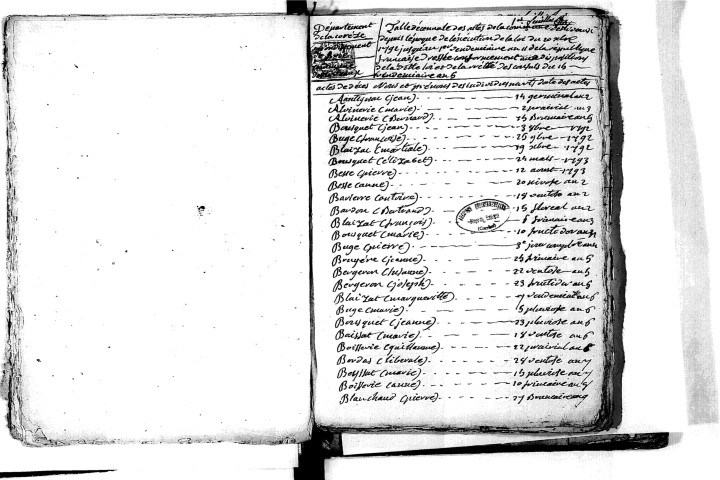 Département
de la corrèze
1er feuillet
Table décennale des actes de la
depuis l'époque de l'exécution de la loi du 20 xbre
1792 jusqu'au 1er vendemiaire an 11 de la république
francaise dressée conformement aux disposition
de la de l'arreté des consuls du 25
vendemiaire an 6
actes de déces Noms et prénoms des individus morts date des actes
(jean) 14 germinal an 2
Alvinerie (marie) 2 prairial an 3
Alvinerie (Bernard) 15 Brumaire an 5
Bousquet (jean) 3 xbre 1792
Buge (francoise) 25 9bre 1792
Blaizat (martiale) 19 xbre 1792
Bousquet (Elizabet) 24 mars 1793
Besse (pierre) 12 aoust 1793
Besse (anne) 20 nivose an 2
Baviere (antoine) 18 ventose an 2
Bardon (Bertrand) 15 floreal an 2
Blaizat (françois) 6 frimaire an 3
Bousquet (marie) 10 fructidor an 3
Buge (pierre) 3e jour complre an
Bruyére (jeanne) 25 frimaire an 5
Bergeron (susanne) 22 ventose an 5
Bergeron (joseph) 23 fructidor an 5
Blaizat (margueritte) 7 vendemiaire an 6
Buge (marie) 15 pluviose an 6
Bousquet (jeanne) 23 pluviose an 6
Baissat (marie) 18 ventose an 6
Boisserie (guillaume) 22 prairial an 6
Bordas (liberale) 28 ventose an 7
Beyssat (marie) 15 pluviose an 7
Boisserie (anne) 10 frimaire an 9
Blanchaud (pierre) 27 Brumaire an 9